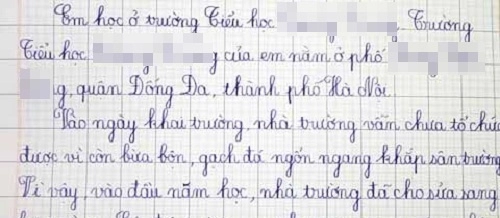 Em học ở trường Tiểu học Trường
Tiểu học g của em nằm ở phố
g, quận Đống Đa, thành phố Hà Nội.
Vào ngày khai trường, nhà trường vẫn chưa tổ chức
được vì còn bừa bộn, gạch đá ngổn ngang khắp sân trường
Vì vậy, vào đầu năm học, nhà trường đã cho sửa sang